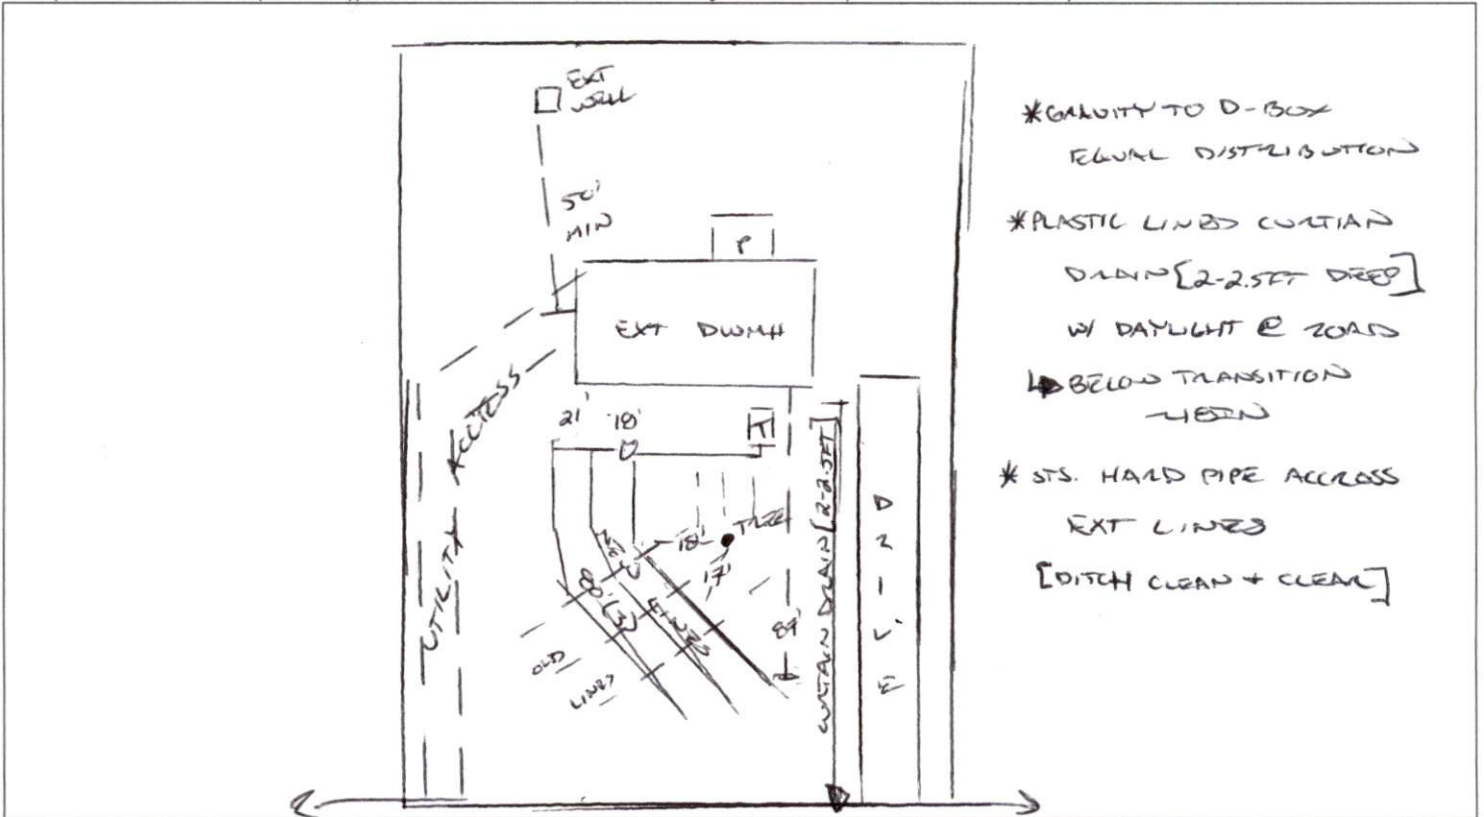 EXT
WELL
50'
MIN
P
EXT DWMH
21' 18'
T
ACCESS
UTILITY
TREE
18'
17'
80' (3)
NEW
LINES
OLD
LINES
89'
CURTAIN DRAIN [2-2.5FT]
DRIVE
*GRAVITY TO D-BOX
EQUAL DISTRIBUTION
*PLASTIC LINED CURTIAN
DRAIN [2-2.5FT DEEP]
W/ DAYLIGHT @ ROAD
BELOW TRANSITION
* STS. HARD PIPE ACCROSS
EXT LINES
[DITCH CLEAN + CLEAR]